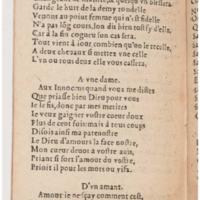 Garde le hurt de la demy rondelle
Venons au point femme qui n'est fidelle
N'a pas lōg cours, son dit bien tost s'y d'elle,
Car à la fin cognu son cas sera.
Tout vient à jour combien qu'on le
A deux chevaux si mettes vne celle
L'vn ou tous deux elle vous cassera.
A vne dame.
Aux Innocens quand vous me distes
Que priasse bien Dieu pour vous
Ie le fis, donc par mes merites
Ie veux gaigner vostre cœur doux
Plus de cent fois mais à tous coups
Disois ainsi ma patenostre
Le Dieu d'amours la face nostre,
Mon cœur denot à vous avoir,
Priant si fort l'amour du vostre,
Prioit il pour les mors ou
D'vn amant.
Amour ie ne sçay comment cest,